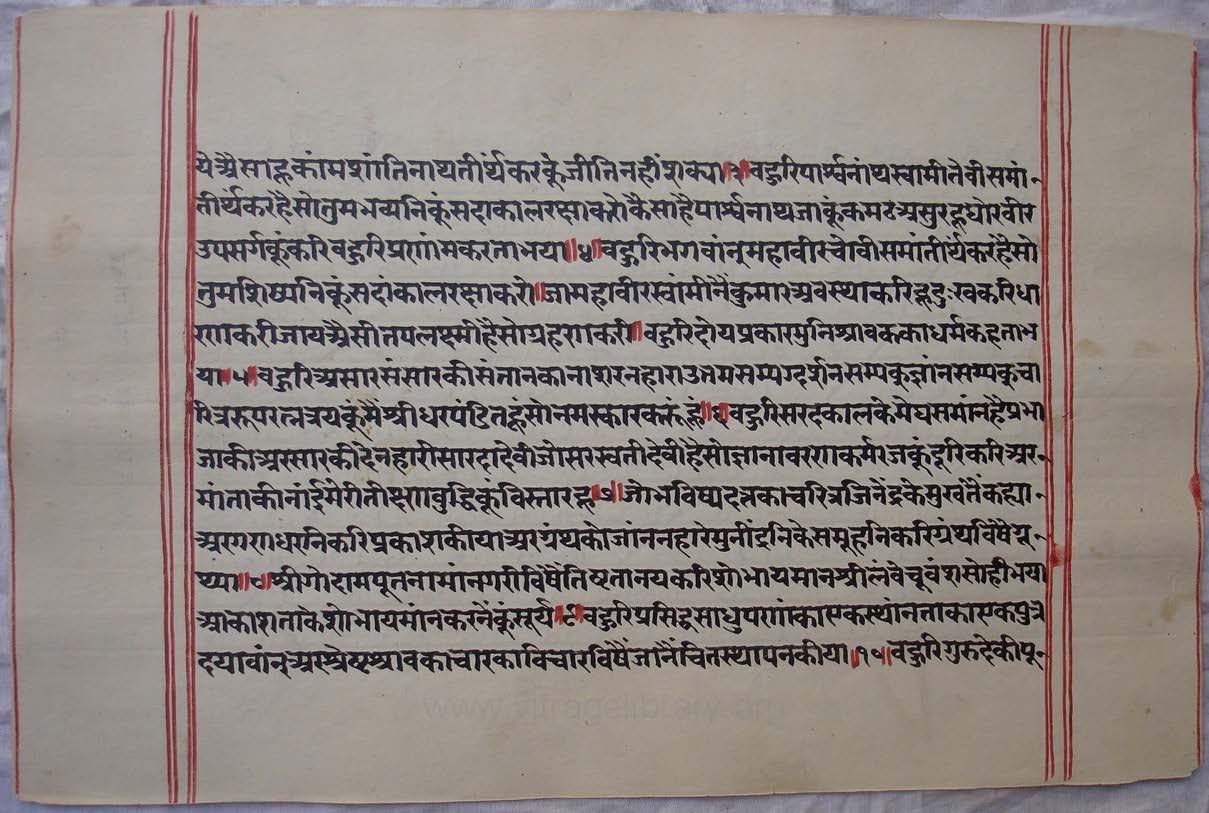 यैअैसाहूकांमशांतिनाथतीर्थंकरकूंजीतिनहींशक्या॥३॥वहुरिपार्श्वनांथस्वामीतेवीसमां
तीर्थंकरहैसोतुमभव्यनिकूंसदाकालरक्षाकरोकैसाहैपार्श्वनाथजाकूंकमठअसुरहूघोरवीर
उपसर्गकूंकरिवहुरिप्रणांमकरताभया॥४॥वहुरिभगवांन्महावीरचोवीसमांतीर्थकरहैसो
तुमशिष्यनिकूंसदांकालरक्षाकरो॥जामहावीरस्वांमीनैकुमारअवस्थाकरिहूदुःखकरिधा
रणाकरीजायअैसीतपलक्ष्मीहैसोग्रहणाकरी॥वहुरिदोयप्रकारमुनिश्रावककाधर्मकहताभ
या॥५॥वहुरिअसारसंसारकीसंतानकानाशरनहाराउत्तमसम्यग्दर्शनसम्यक्ज्ञांनसम्यक्चा
रित्ररूपरत्नत्रयकूंमैंश्रीधरपंडितहूंसोनमस्कारकरूंहूं॥६॥वहुरिसरदकालकेमेघसमांनहैप्रभा
जाकीअरसारकीदेनहारीसारदादेवीजोसरस्वतीदेवीहैसोज्ञानावरणाकर्मरजकूंदूरिकरिअर
मांताकीनांईमेरीतीक्ष्णाबुद्धिकूंविस्तारहू॥७॥जोभविष्यदत्तकाचरित्रजिनेंद्रकेमुखतैंकह्या
अरगणाधरनिकरिप्रकाशकीयाअरग्रंथकोजांननहारेमुनींद्रनिकेसमूहनिकरिग्रंथविषैंगू
थ्या॥८॥श्रीगोदामपूतनामांनगरीविषैंतिष्टतानयकरिशोभायमानश्रीलंवेचूवंशसोहीभया
आकाशताकेशोभायमांनकरनेंकूंसूर्य॥९॥वहुरिप्रसिद्धसाधुपणांकाएकस्थांनताकाएकपुत्र
दयावांन्अरश्रेष्टश्रावकाचारकाविचारविषैंजांनैंचितस्थापनकीया॥१०॥वहुरिगुरुदेकीपू